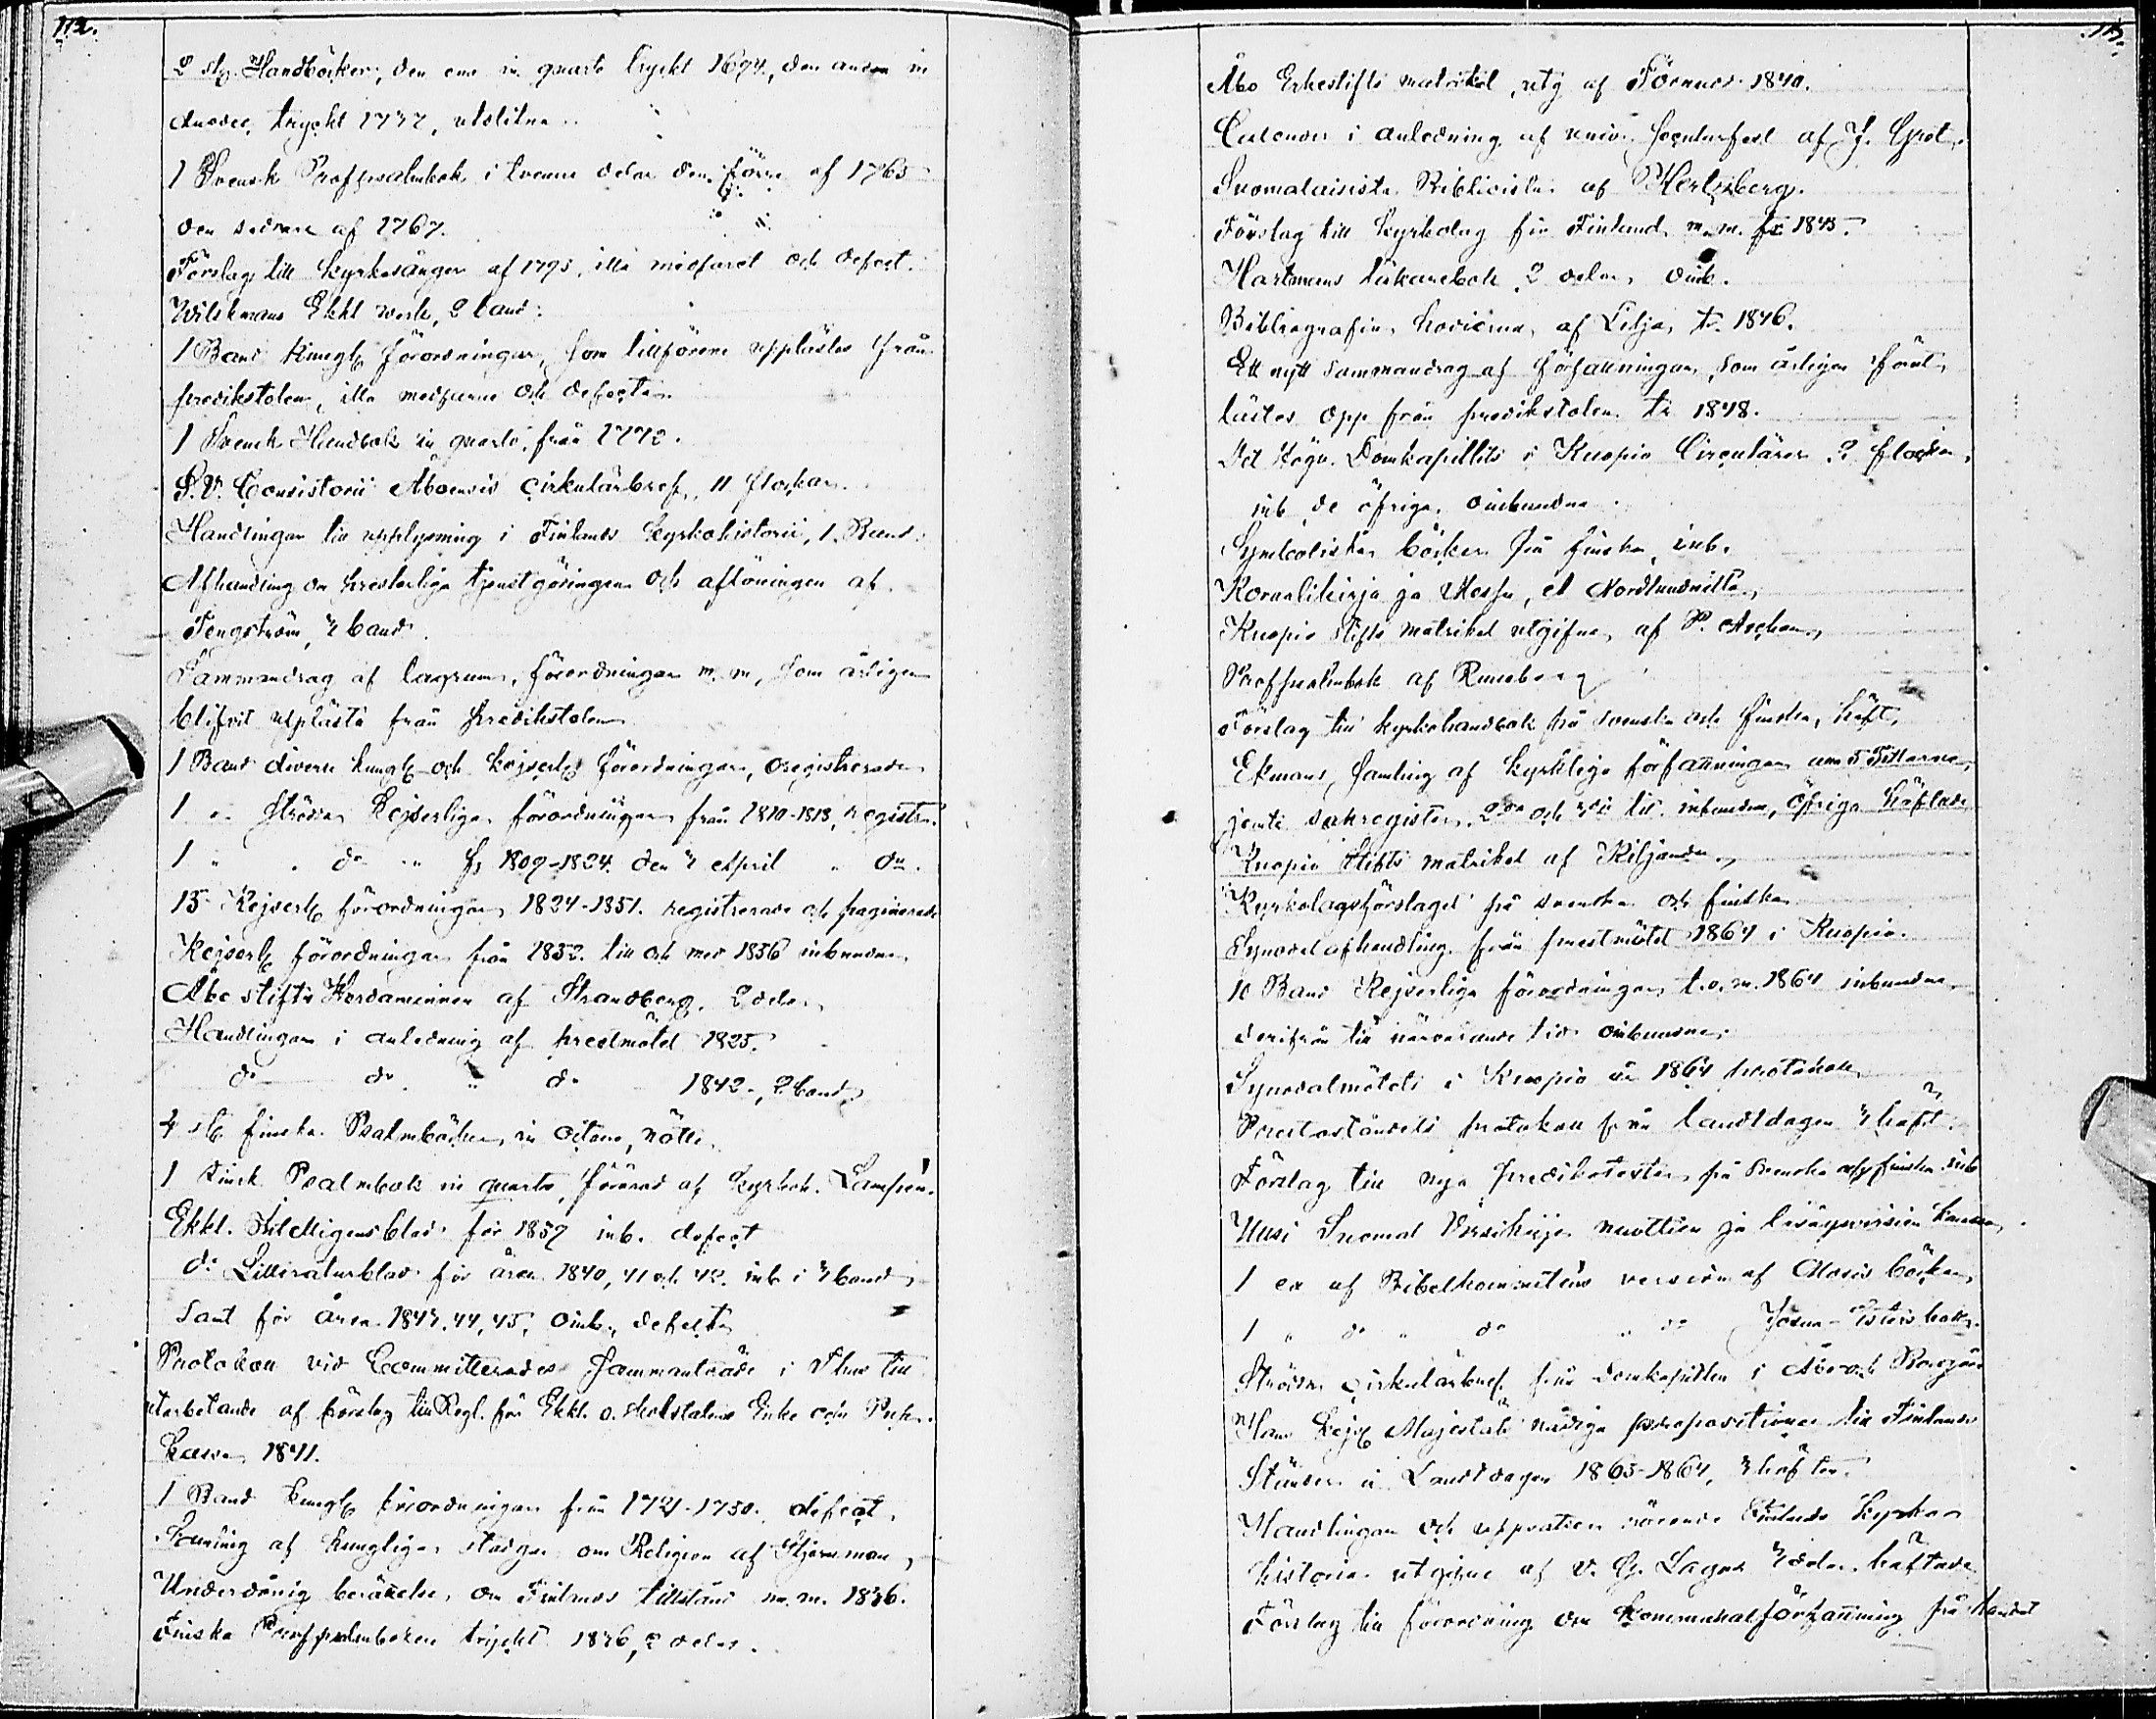 112.
2 st. Handböcker, den ena in quarto tryckt 1694, den andra in
duodec, tryckt 1737, utslitna
1 Svensk Profpsalmbok i tvenne delar den förre af 1765
den sednare af 1767.
Förslag till kyrkosånger af 1793, illa medfaret och defect.
Wilskmans Ekkl werk, 2 band.
1 Band kungl förordningar, som tillförene upplästes från
predikstolen, illa medfarne och defecta
1 Svensk Handbok in quarto, från 1772.
S.V. Consistorii Aboensis cirkulärbref, 11 flockar.
Handlingar till upplysning i Finlands kyrkohistorie, 1. Band.
Afhandling om presterliga tjenstgöringen och aflöningen af
Tengström, 3 band.
Sammandrag af lagrum, förordningar m. m, som årligen
blifvit upplästa från predikstolen
1 Band diverse kungl och kejserl förordningar, oregistrerade
1 " ströda Kejserliga förordningar från 1810-1813, registr.
1 " " do " fr 1809-1824. den 3 April " do.
15 Kejserl förordningar 1824-1851. registrerade och paginerade
Kejserl förordningar från 1852. till och med 1856 inbundna
Åbo stifts Herdaminnen af Strandberg, 2 delar
Handlingar i anledning af prestmötet 1825.
do do " do 1842, 2 band
4 st finska Psalmböcker, in octavo, nötta
1 Finsk Psalmbok in quarto, förärad af kyrkoh. Lampén.
Ekkl. Intelligensblad för 1839 inb. defect
do Litteraturblad för åren 1840, 41 och 42. inb i 3 band
samt för åren 1843, 44, 45, oinb, defecta
Protokoll vid Committerades sammanträde i Åbo till
utarbetande af förslag till Regl. för Ekkl. o. skolstatens Enke och Pup.
kassa 1841.
1 Band kungl förordningar från 1721-1730. defect.
Samling af kungliga stadgar om Religion af Stjernman,
Underdånig berättelse, om Finlands tillstånd m. m. 1836.
Finska Profpsalmboken tryckt 1836, 2 delar.
113.
Åbo Erkestifts matrikel, utg af Törnudd 1840.
Calender i anledning af univ. secularfest af J. Grot.
Suomalaisista Biblioista af Hertzberg.
Förslag till kyrkolag för Finland m.m. fr 1845.
Hartmans läkarebok 2 delar, oinb.
Bibliografia hodierna, af Lilja, tr. 1846.
Ett nytt sammandrag af författningar, som årligen förut
lästes opp från predikstolen tr 1848.
Det Högv. Domkapitlets i Kuopio Circulärer 2 flockar
inb de öfriga oinbundna
Symboliska böcker på finska, inb.
Koraalikirja ja Messu, A. Nordlundilta
Kuopio stifts matrikel utgifven af P. Aschan,
Profpsalmbok af Runeberg
Förslag till kyrkohandbok på svenska och finska, häft,
Ekmans, samling af kyrkliga författningar
jemte sakregister. 2dra och 3dje till inbundna, öfriga häftade
Kuopio Stifts matrikel af Kiljander,
Kyrkolagsförslaget på svenska och finska
Synodalafhandling från prestmötet 1864 i Kuopio.
10 Band Kejserliga förordningar t.o.m. 1864 inbundna
derifrån till närvarande tid oinbundna.
Synodalmötets i Kuopio år 1864 protokoll
Presteståndets protokoll från landtdagen 3 häft.
Förslag till nya predikotexter på svenska och finska inb
Uusi Suomal Virsikirja nuottien ja lisäysvirsien kanssa,
1 ex af Bibelkommiténs version af Mosis böcker
1 " do " do " do Josua - Esters bok.
Ströda cirkulärbref från domkapitlen i Åbo och Borgå
Hans Kejs Majestäts nådiga propositioner till Finlands
Ständer å Landtdagen 1863-1864, 3 häften.
Handlingar och uppsatser rörande Finlands kyrko
historia utgifne af V. G. Lagus 3 delar, häftade
Förslag till förordning om kommunalförfattning på landet